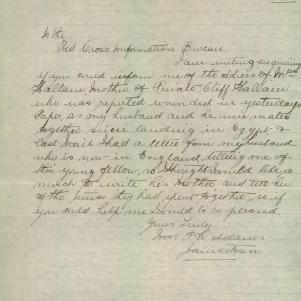 To the
Red Cross Information Bureau
I am writing enquiring
if you could inform me of the adress of Mrs
Hallam Mother of Private Cliff Hallam
who was reported wounded in yesterdays
Paper, as my husband and he were mates
together since landing in Egypt &
last Mail I had a letter from my husband
who is now in England, telling me of
this young fellow, so I thought I would like so
much to write his Mother and tell her
of the times they had spent together, so if
you could help me I would be so pleased
Yours Truly
Mrs Adams
Jamestown